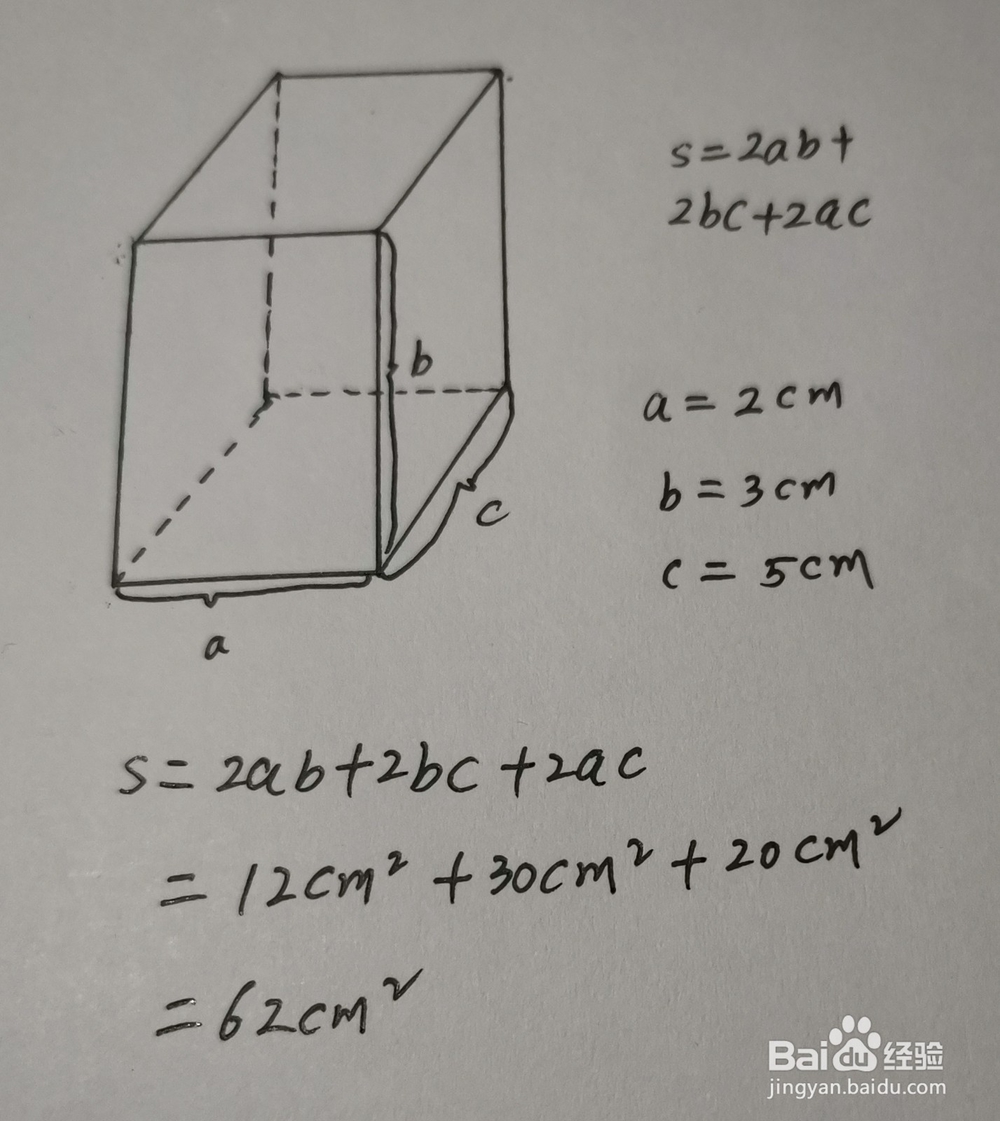 s=2ab+
2bc+2ac
b
a=2cm
b=3cm
c
c=5cm
a
s=2ab+2bc+2ac
=12cm²+30cm²+20cm²
=62cm²
Baidu经验
jingyan.baidu.com